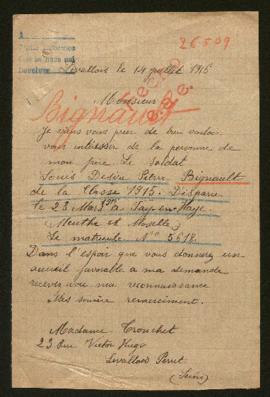 26509
Levallois le 14 juillet 1915
Monsieur
Bignault
Je viens vous prier de bien vouloir
vous intéresser de la personne de
mon frère Le Soldat
Louis Désiré Pierre Bignault
de la Classe 1915. Disparu
le 23 Mars à Fay-en-Haye
Meurthe et Moselle
Le matricule N° 5618.
Dans l'espoir que vous donnerez un
accueil favorable a ma demande
recevez ma reconnaissance
Mes sincère remerciement.
Madame Tronchet
23 Rue Victor Hugo
Levallois Perret
(Seine)